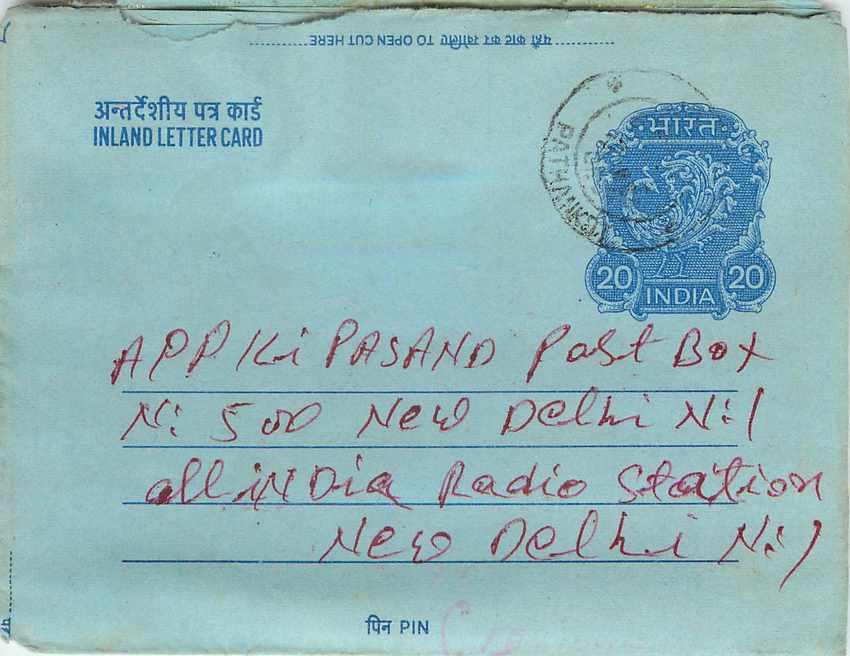 यहाँ काट कर खोलिए TO OPEN CUT HERE
अन्तर्देशीय पत्र कार्ड
INLAND LETTER CARD
भारत
20 20
INDIA
APP Ki PASAND Post Box
N: 500 New Delhi N:1
all iNDia Radio Station
New Delhi N:1
पिन PIN